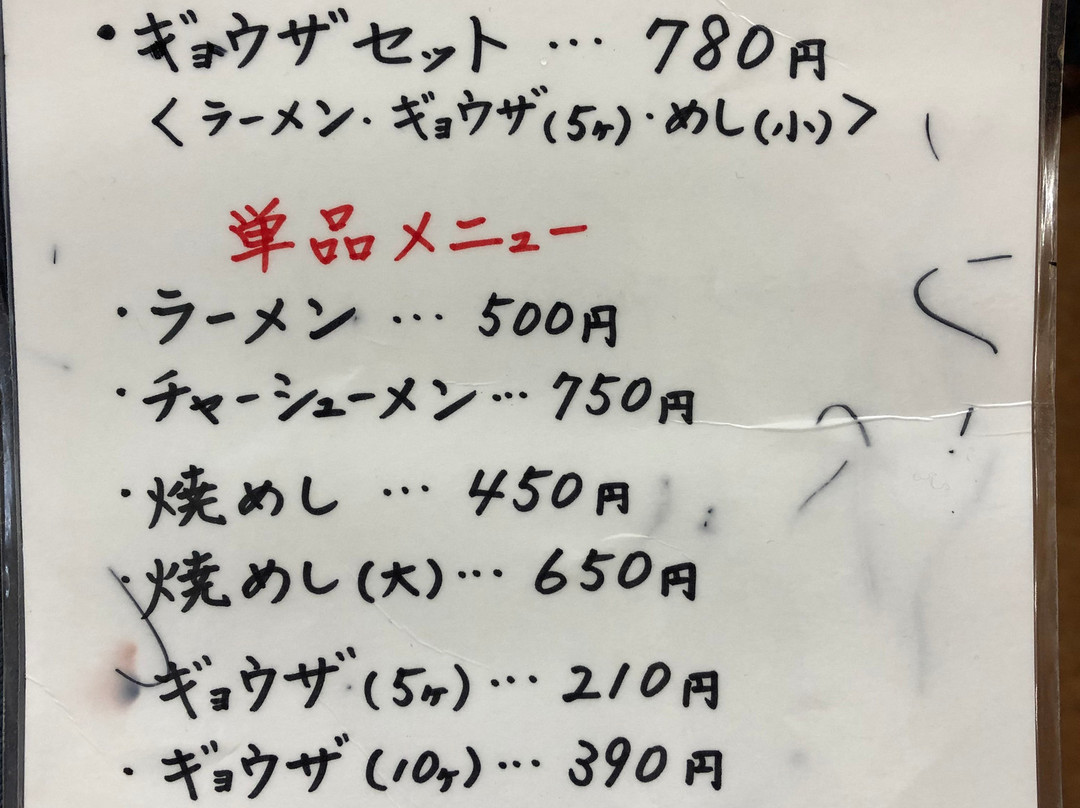 ・ギョウザセット … 780円
〈ラーメン・ギョウザ(5ヶ)・めし(小)〉
単品メニュー
・ラーメン … 500円
・チャーシューメン … 750円
・焼めし … 450円
・焼めし(大) … 650円
ギョウザ(5ヶ) … 210円
・ギョウザ(10ヶ) … 390円